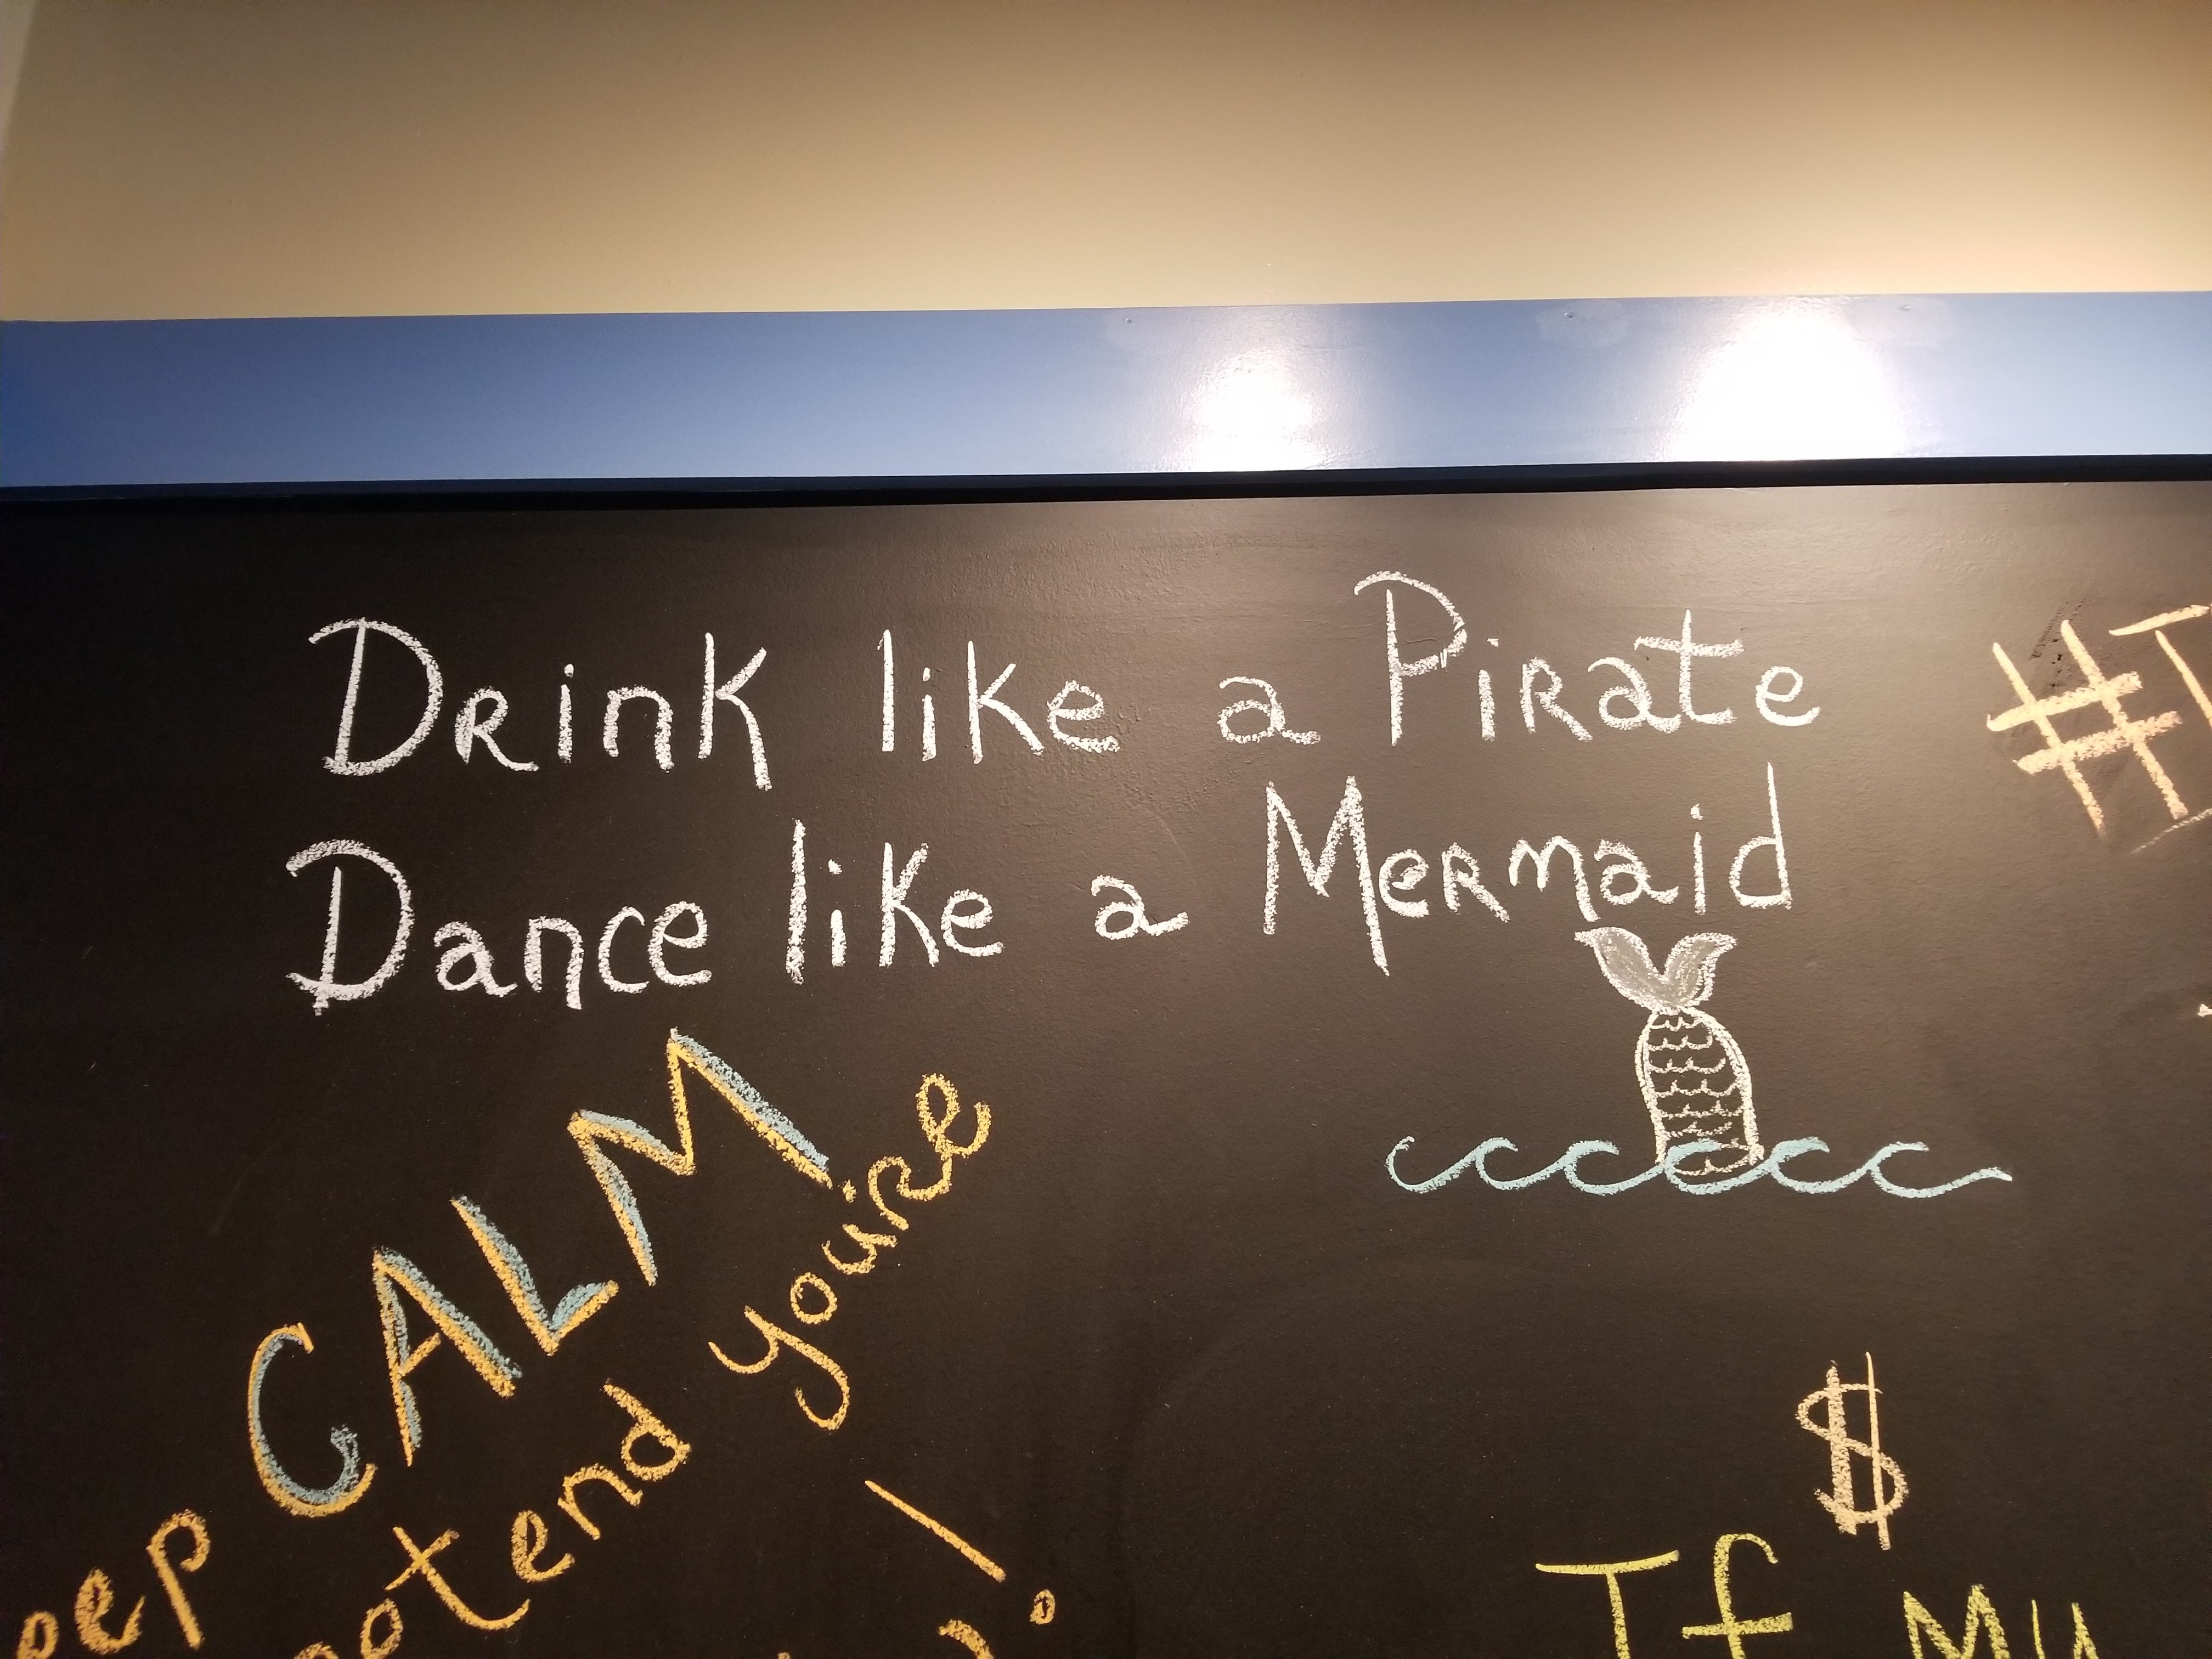 Drink like a Pirate
Dance like a Mermaid
#T
eep CALM
otend you're
!
$
If My